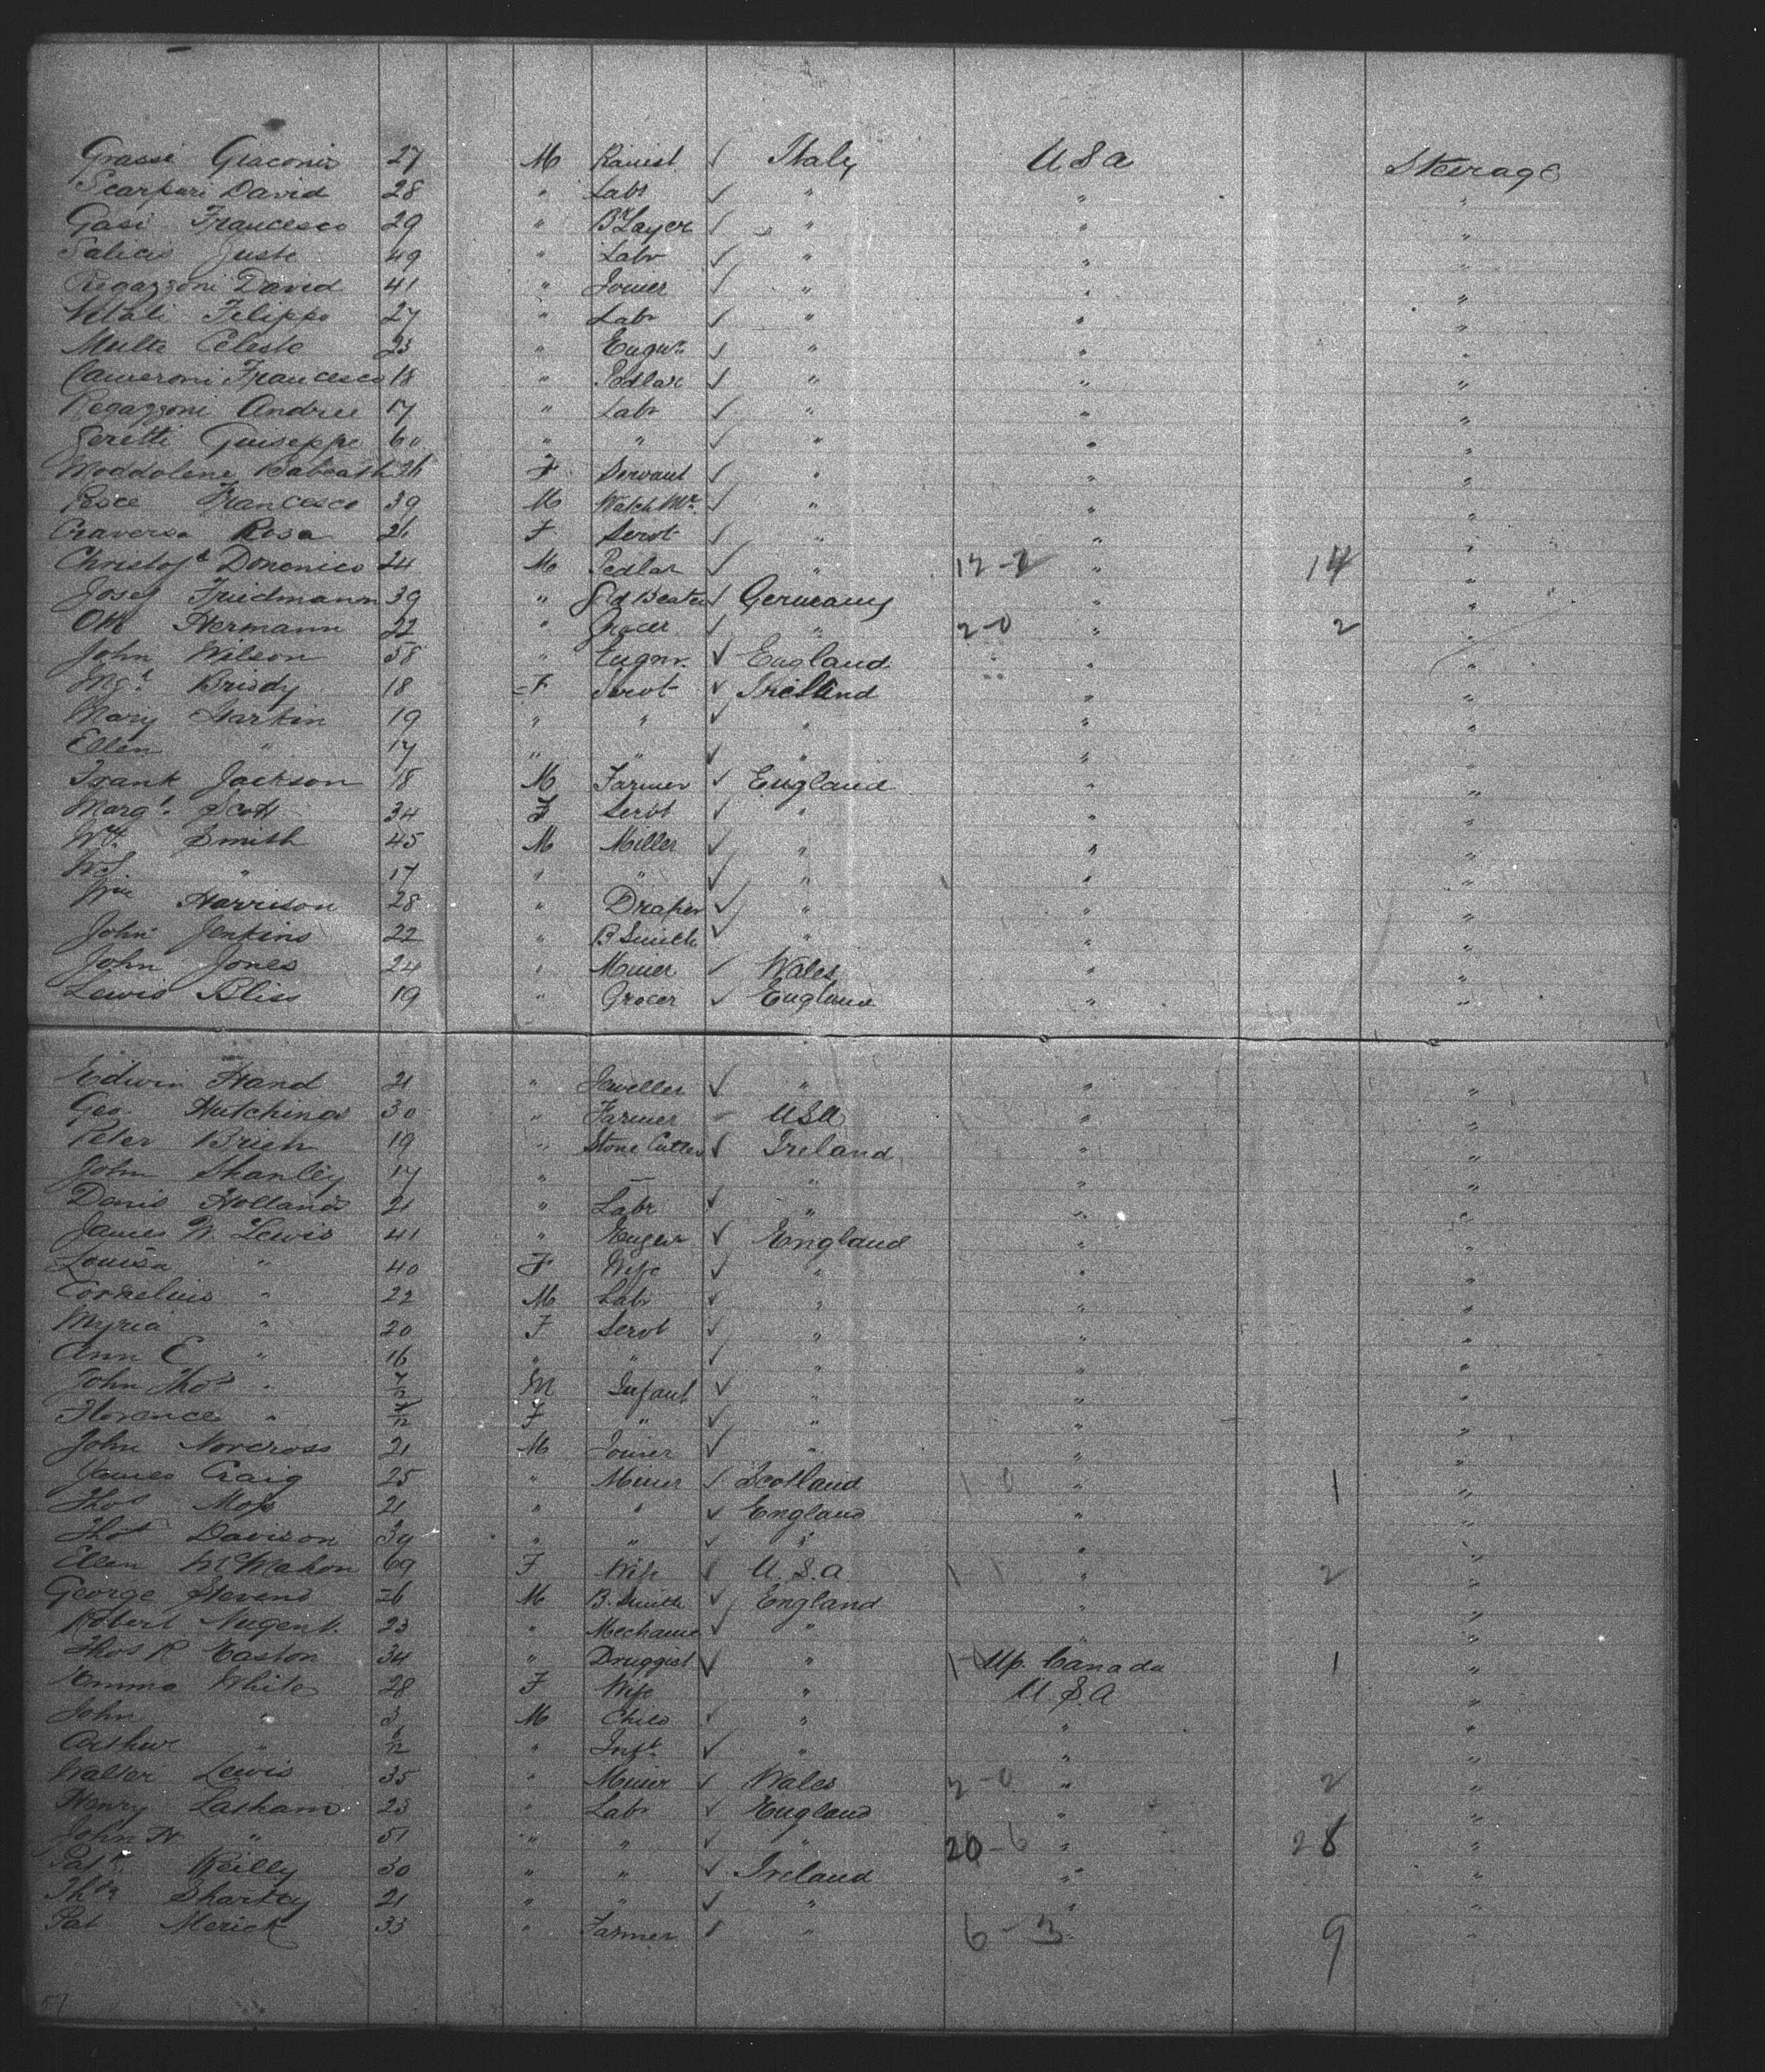 Grassi Giacomo 27 M Rauist ✓ Italy USA Steerage
Scarpari David 28 " Labr ✓ " " "
Gasi Francesco 29 " B Layer ✓ " " "
Salicis Juste 49 " Labr ✓ " " "
Regazzoni David 41 " Joiner ✓ " " "
Vitali Filippo 27 " Labr ✓ " " "
Multe Celeste 23 " Engnr ✓ " " "
Cameroni Francesco 18 " Pedlar ✓ " " "
Regazzoni Andree 17 " Labr ✓ " " "
Seretti Guiseppe 60 " " ✓ " " "
Maddolene 26 F Servant ✓ " " "
Pesce Francesco 39 M Watch Mr ✓ " " "
Craversa Rosa 21 F Servt ✓ " " "
Christof Domenico 24 M Pedlar ✓ " 12-2 " 14 "
Josef Friedmann 39 " Gd Beater ✓ Germany " "
Otto Hermann 22 " Grocer ✓ " 2-0 " 2 "
John Wilson 58 " Engnr. ✓ England " "
Mgt Bridy 18 F Servt ✓ Ireland " "
Mary Harkin 19 " " ✓ " " "
Ellen " 17 " " ✓ " " "
Frank Jackson 18 M Farmer ✓ England " "
Margt Scott 34 F Servt ✓ " " "
Wm Smith 45 M Miller ✓ " " "
" 17 " " ✓ " " "
Wm Harrison 28 " Draper ✓ " " "
John Jenkins 22 " B Smith ✓ " " "
John Jones 24 " Miner ✓ Wales " "
Lewis Bliss 19 " Grocer ✓ England " "
Edwin Hand 21 " Jeweller ✓ " " "
Geo. Hutchings 30 " Farmer USA " "
Peter Brien 19 " Stone Cutter ✓ Ireland " "
John Shanley 17 " — " " "
Denis Holland 21 " Labr ✓ " " "
James W. Lewis 41 " Enger ✓ England " "
Louisa " 40 F Wife ✓ " " "
Cornelius " 22 M Labr ✓ " " "
Myria " 20 F Servt ✓ " " "
Ann E " 16 " " ✓ " " "
John Thos " M Infant ✓ " " "
Florence " F " ✓ " " "
John Norcross 21 M Joiner ✓ " " "
James Craig 25 " Miner ✓ Scotland 1-0 " 1 "
Thos Moss 21 " " ✓ England " "
Thos Davison 39 " " ✓ " " "
Ellen McMahon 69 F Wife ✓ U.S.A. 1-1 " 2 "
George Stevens 26 M B. Smith ✓ England " "
Robert Nugent. 23 " Mechanic ✓ " " "
Thos R Easton 34 " Druggist ✓ " 1- Up. Canada 1 "
Emma White 28 F Wife " U.S.A "
John " 3 M Child ✓ " " "
Arthur " " Inft. ✓ " " "
Walter Lewis 35 " Miner ✓ Wales 2-0 " 2 "
Henry Latham 23 " Labr ✓ England " "
John W " 51 " " ✓ " 20-6 " 28 "
Patk Reilly 30 " " ✓ Ireland " "
Thos Sharkey 21 " " ✓ " " "
Pat Merick 33 " Farmer ✓ " 6-3 " 9 "
57